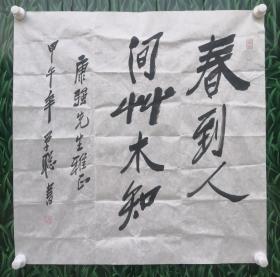 春到人
间艸木知
康强先生雅正
甲午年